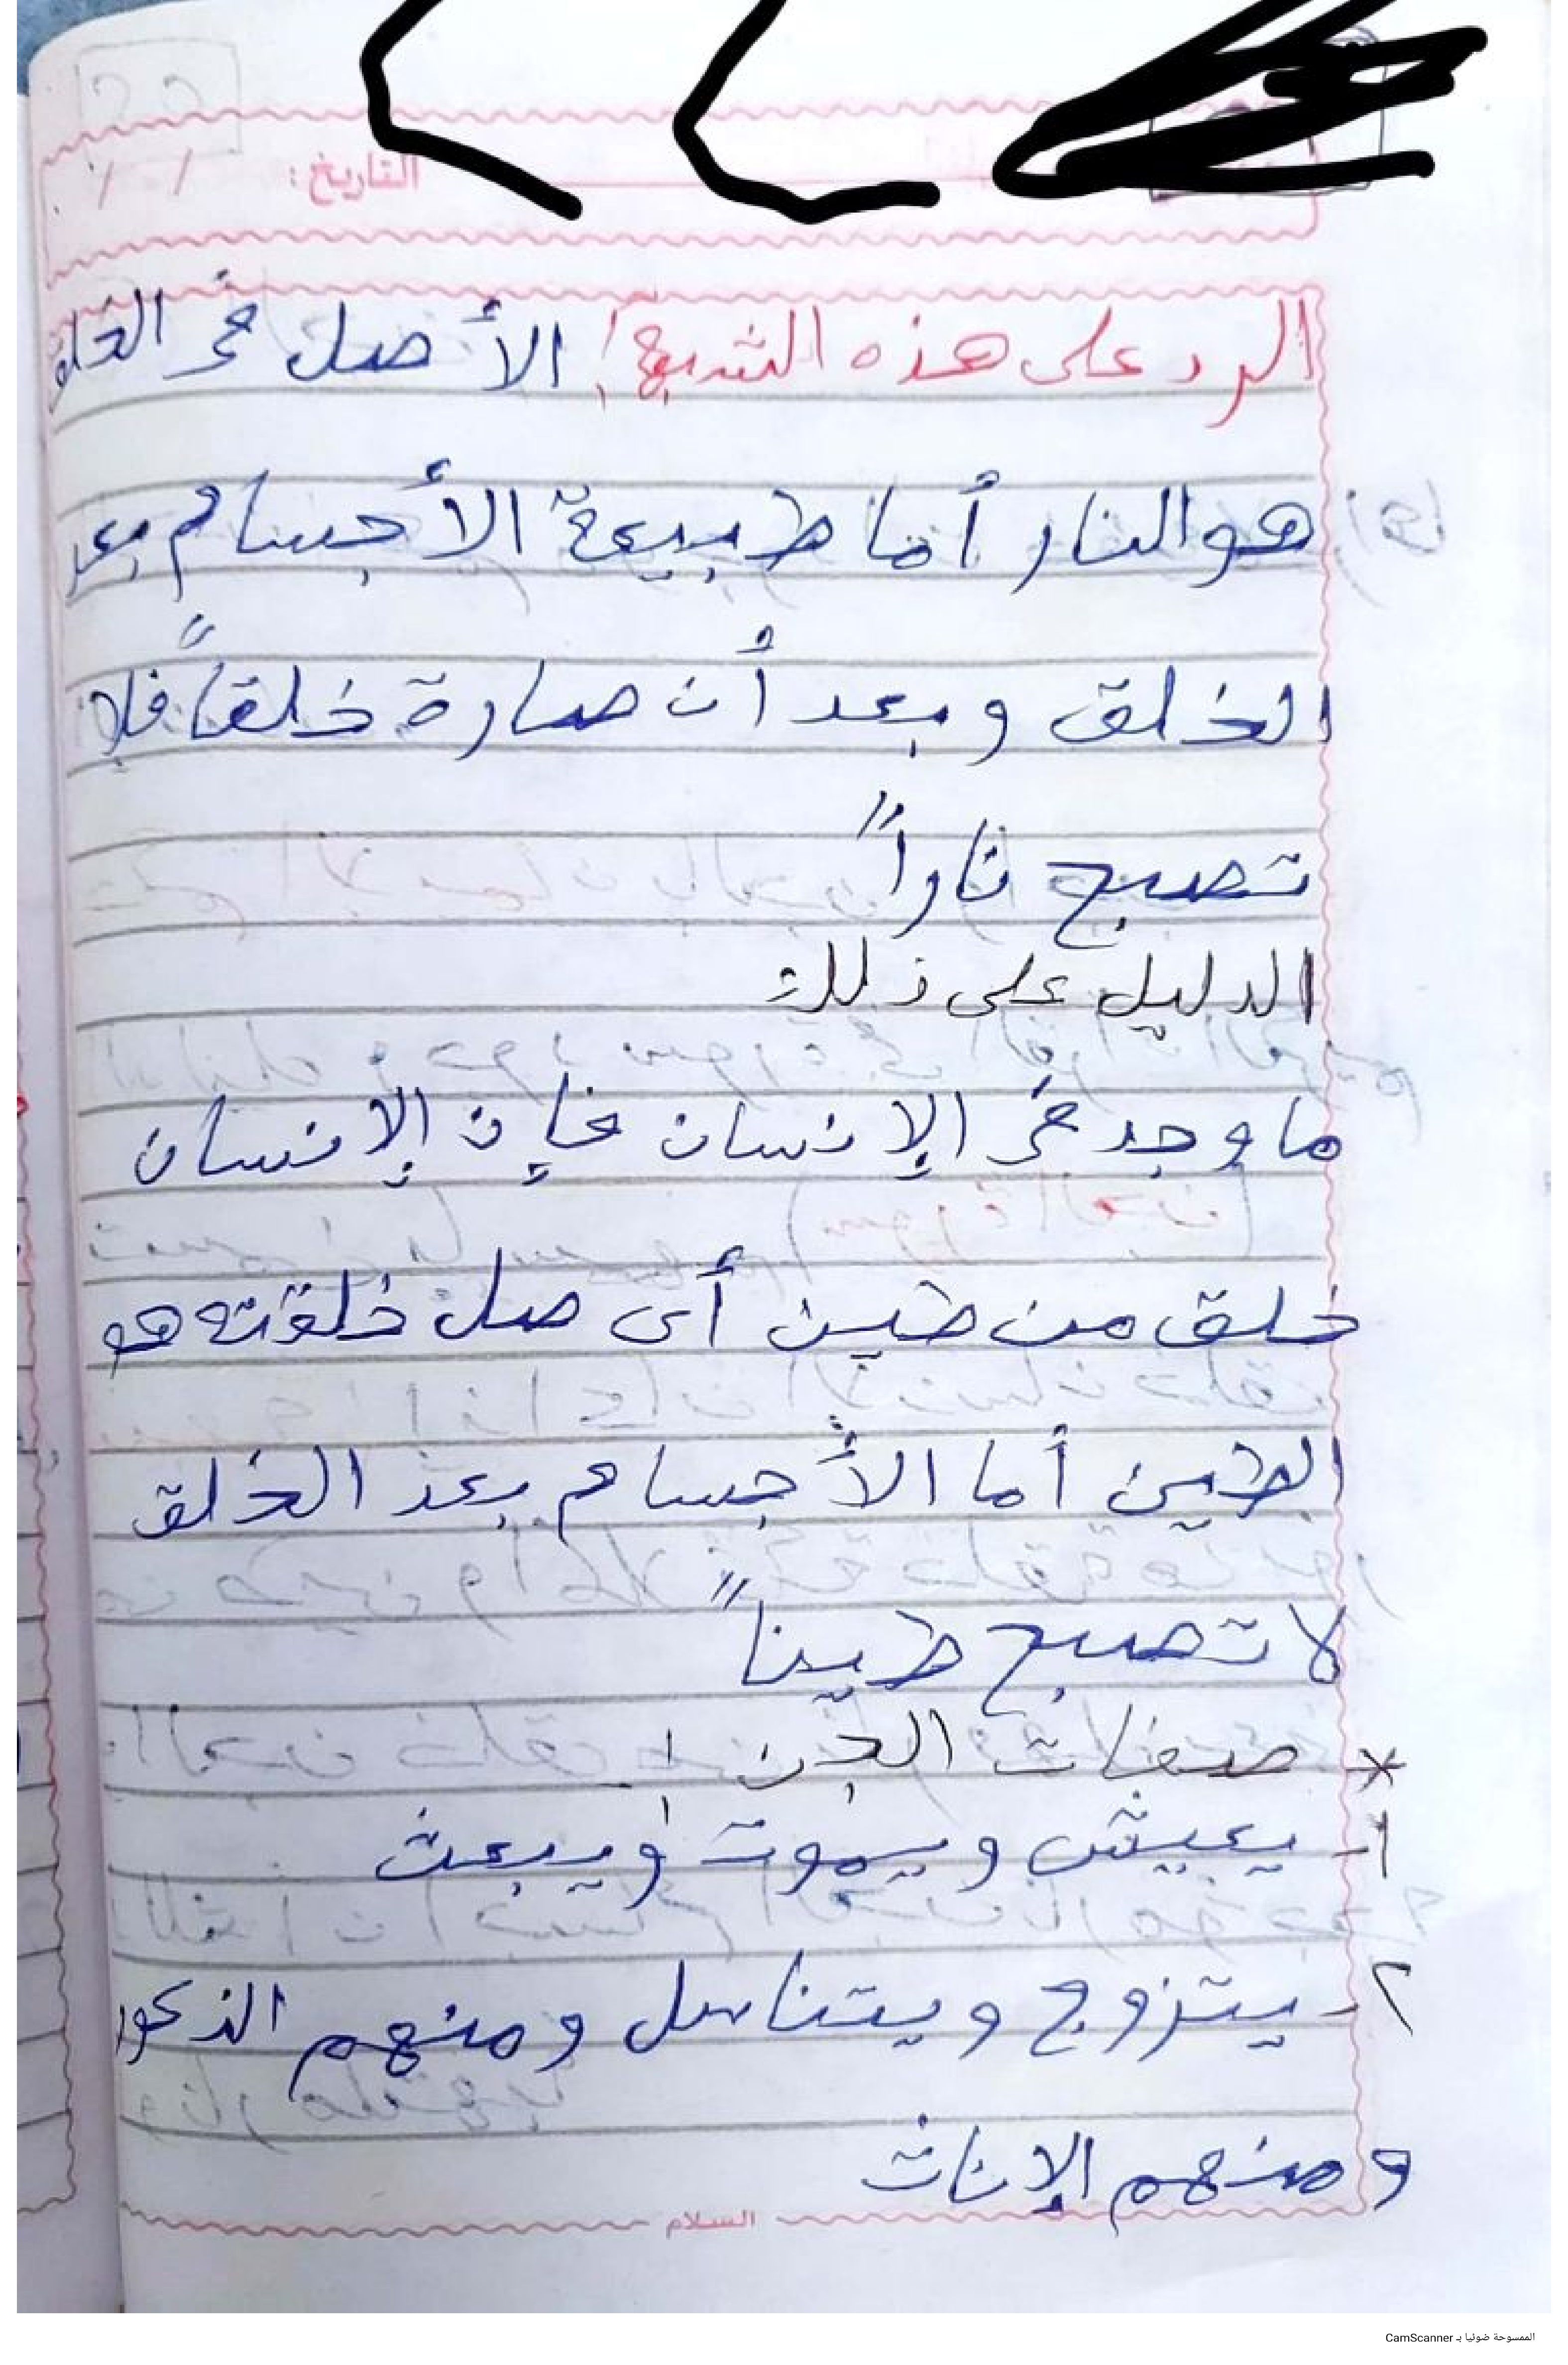 التاريخ: / /
الرد على هذه الشبهة: الأصل في الخلق
هو النار أما طبيعة الأجسام بعد
الخلق وبعد أن صارة خلقاً فلا
تصبح ناراً
الدليل على ذلك
ما وجد في الإنسان فإن الإنسان
خلق من طين أى صل خلقته هو
الطين أما الأجسام بعد الخلق
لا تصبح طيناً
* صفات الجن :
١- يعيش ويموت ويبعث
٢- يتزوج ويتناسل ومنهم الذكور
ومنهم الإناث
السلام
الممسوحة ضوئيا بـ CamScanner